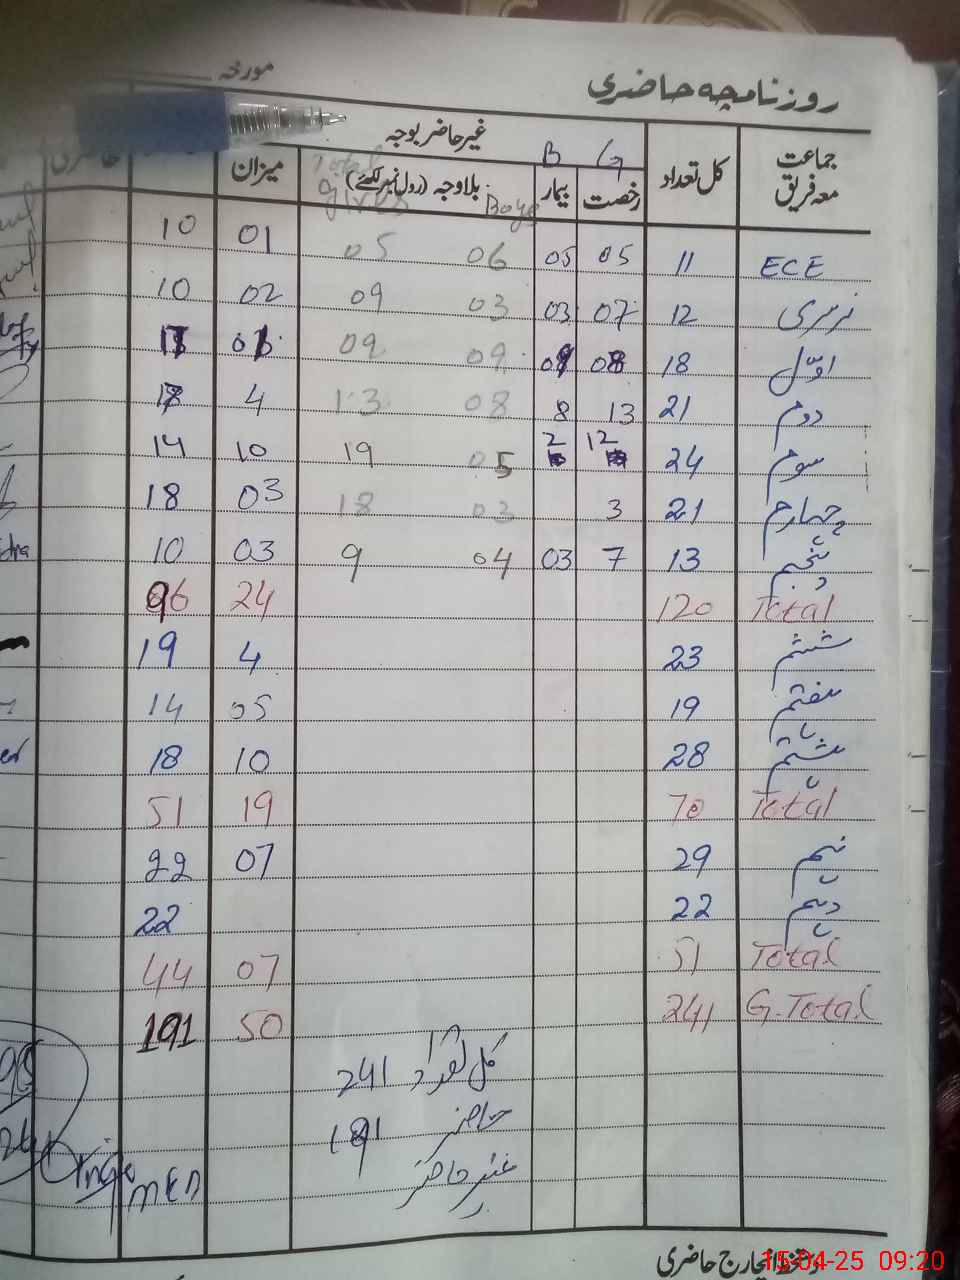 روزنامچہ حاضری
مورخہ
جماعت معہ فریق کل تعداد غیر حاضر بوجہ
G B
رخصت بیمار بلاوجہ (رول نمبر لکھئے) میزان
Boys Total girls
ECE 11 05 05 06 05 01 10
نرسری 12 07 03 03 09 02 10
اوّل 18 08 09 09
دوم 21 13 8 08 13 4 17
سوم 24 12 2 05 19 10 14
چہارم 21 3 03 18 03 18
پنجم 13 7 03 04 9 03 10
Total 120 24 96
ششم 23 4 19
ہفتم 19 05 14
ہشتم 28 10 18
Total 70 19 51
نہم 29 07 22
دہم 22 22
Total 51 07 44
G.Total 241 50 191
کل تعداد 241
حاضر 191
غیر حاضر
دستخط انچارج حاضری
15-04-25 09:20